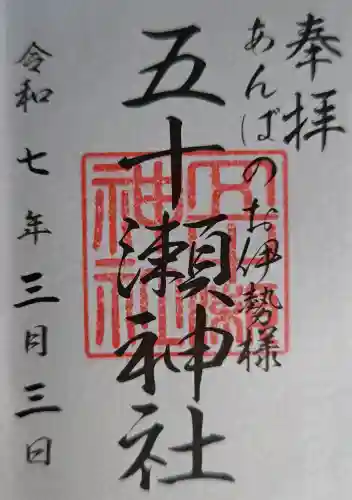 奉拝
あんばのお伊勢様
五十瀬神社
令和七年三月三日